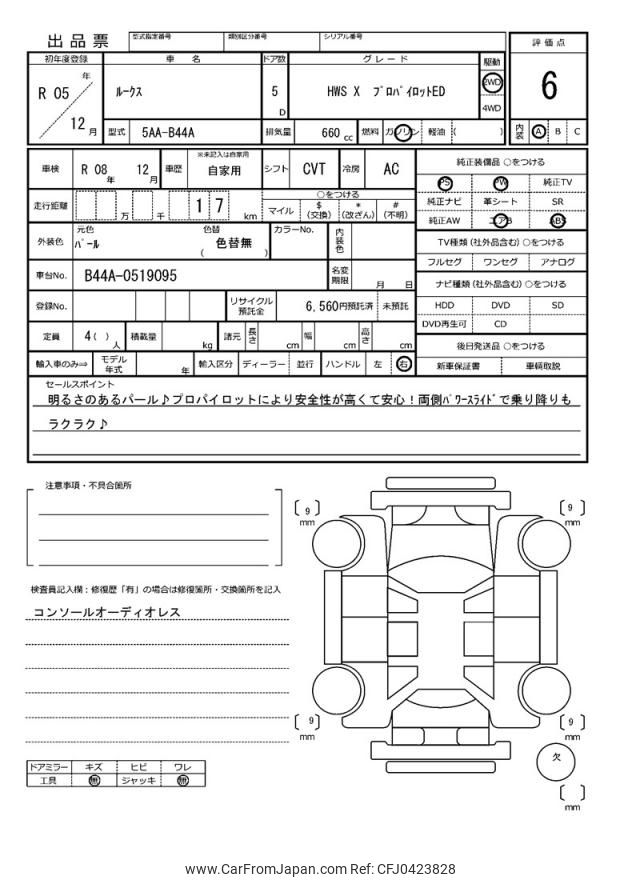 出品票 型式指定番号 類別区分番号 シリアル番号 評価点
初年度登録 車名 ドア数 グレード 駆動
R 05 年 12 月 ルークス 5 D HWS X プロパイロットED 2WD 4WD 6
型式 5AA-B44A 排気量 660 cc 燃料 ガソリン 軽油 ( ) 内装 A B C
車検 R 08 年 12 月 車歴 ※未記入は自家用 自家用 シフト CVT 冷房 AC 純正装備品 ○をつける
PS PW 純正TV
走行距離 万 千 1 7 km ○をつける
マイル $ (交換) * (改ざん) # (不明)
純正ナビ 革シート SR
純正AW エアB ABS
外装色 元色 パール 色替 色替無 ( ) カラーNo. 内装色
TV種類 (社外品含む) ○をつける
フルセグ ワンセグ アナログ
車台No. B44A-0519095 名変期限 月 日
ナビ種類 (社外品含む) ○をつける
登録No. リサイクル預託金 6,560円預託済 未預託
HDD DVD SD
DVD再生可 CD
定員 4( ) 人 積載量 kg 諸元 長さ cm 幅 cm 高さ cm
後日発送品 ○をつける
輸入車のみ⇒ モデル年式 年 輸入区分 ディーラー 並行 ハンドル 左 右
新車保証書 車輌取説
セールスポイント
明るさのあるパール♪プロパイロットにより安全性が高くて安心！両側パワースライドで乗り降りも
ラクラク♪
注意事項・不具合箇所
検査員記入欄：修復歴「有」の場合は修復箇所・交換箇所を記入
コンソールオーディオレス
ドアミラー キズ ヒビ ワレ
工具 無 ジャッキ 無
9 mm
9 mm
9 mm
9 mm
欠
mm
www.CarFromJapan.com Ref: CFJ0423828